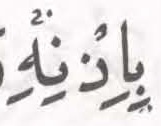 بِاِذْنِهٖ